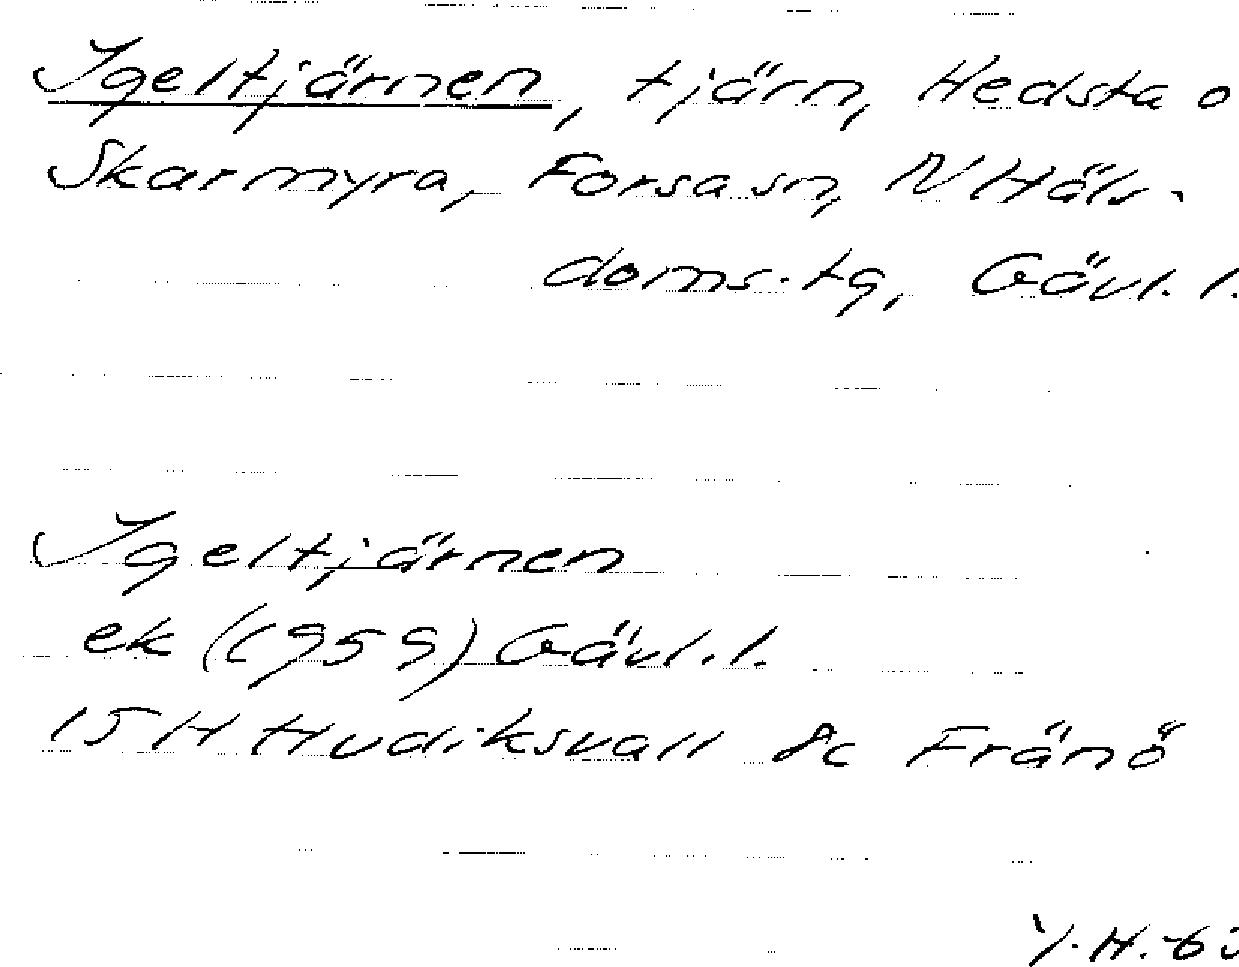 Igeltjärnen, tjärn, Hedsta o
Skarmyra, Forsa sn, N Häls.
doms. tg, Gävl. l.
Igeltjärnen
ek (1959) Gävl. l.
15 H Hudiksvall 8c Fränö
Y. H.